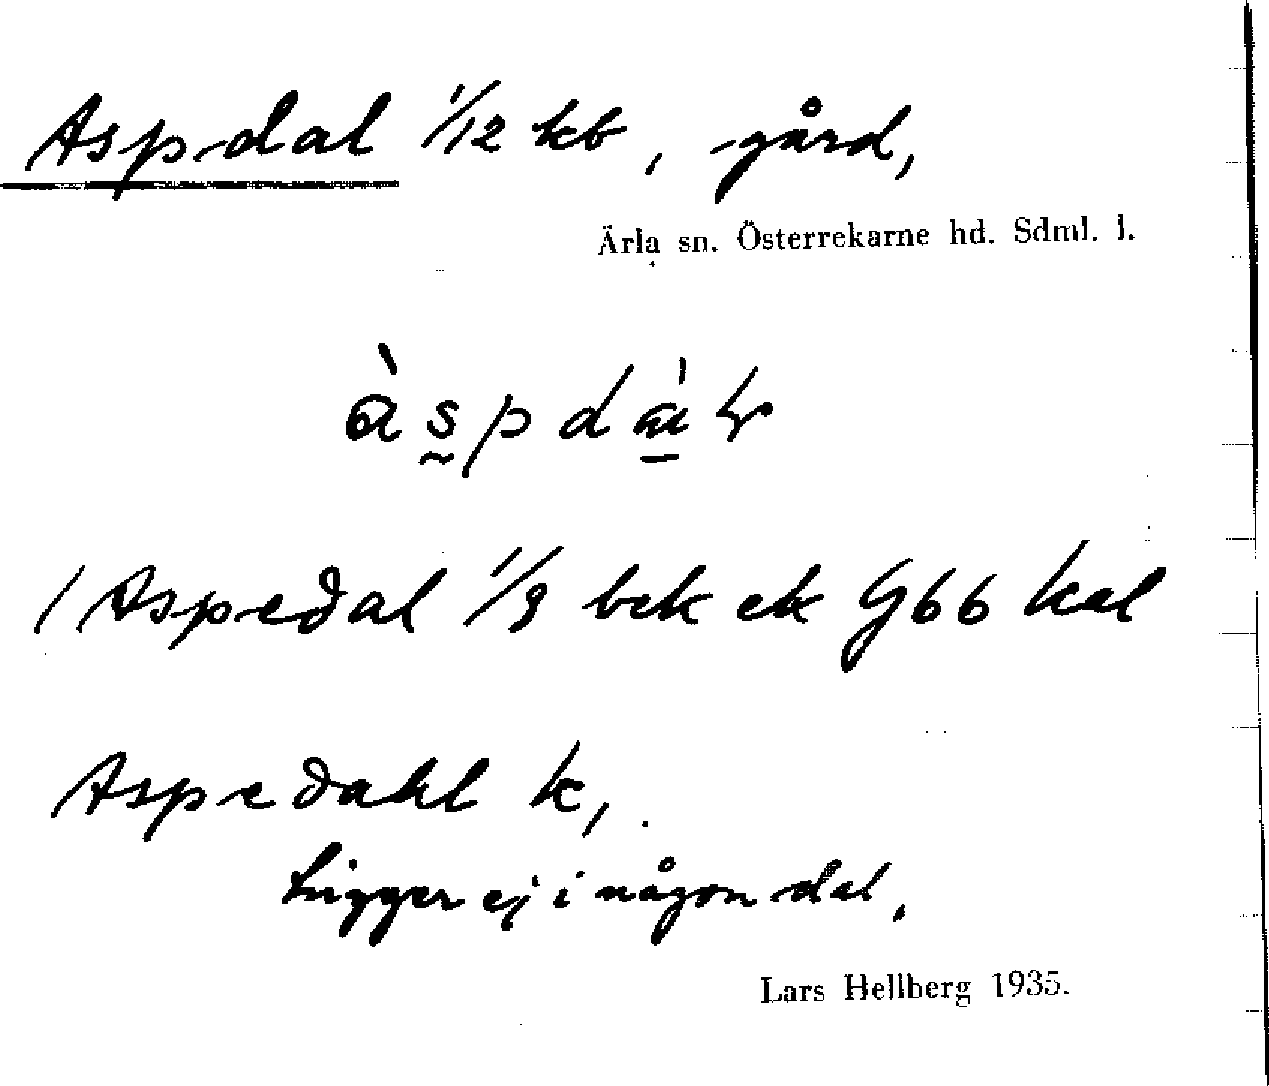 Aspdal 1/12 kb, -gård,
Ärla sn. Österrekarne hd. Sdml. l.
àspdà̱
/ Aspedal 1/9 bek ek G66 kal
Aspedahl k,
Ligger ej i någon dal,
Lars Hellberg 1935.